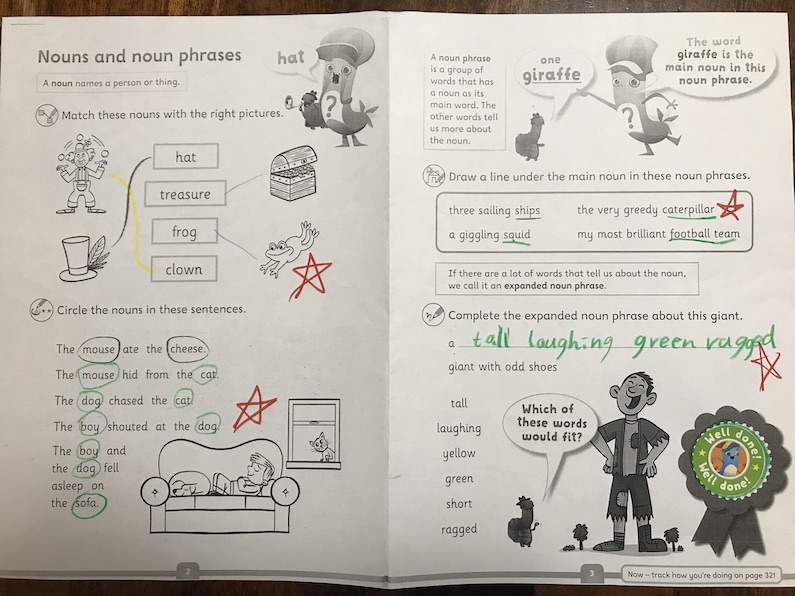 Nouns and noun phrases
A noun names a person or thing.
hat
?
Match these nouns with the right pictures.
hat
treasure
frog
clown
Circle the nouns in these sentences.
The mouse ate the cheese.
The mouse hid from the cat.
The dog chased the cat.
The boy shouted at the dog.
The boy and
the dog fell
asleep on
the sofa.
2
A noun phrase
is a group of
words that has
a noun as its
main word. The
other words tell
us more about
the noun.
one
giraffe
?
The word
giraffe is the
main noun in this
noun phrase.
Draw a line under the main noun in these noun phrases.
three sailing ships
the very greedy caterpillar
a giggling squid
my most brilliant football team
If there are a lot of words that tell us about the noun,
we call it an expanded noun phrase.
Complete the expanded noun phrase about this giant.
a tall laughing green ragged
giant with odd shoes
tall
laughing
yellow
green
short
ragged
Which of
these words
would fit?
Well done!
Well done!
3
Now – track how you're doing on page 321